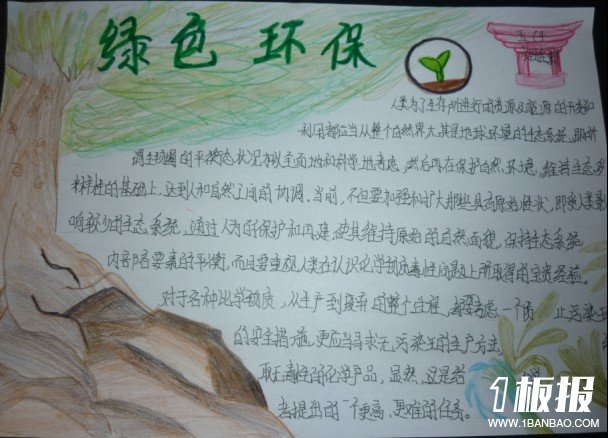 绿色环保
人类为了生存所进行的资源及能源的开发和
利用都应当从整个自然界尤其是地球环境的生态系统,即所
谓生物圈的平衡态状况和从全面地和科学地考虑,然后再在保护自然环境,维持生态多
来样性的基础上,达到人和自然之间的协调。当前,不但要加强和扩大那些具高原始性状,即受人类影
响较少的生态系统,通过人为的保护和内建,使其维持原始的自然面貌,保持生态系统
内部各要素的平衡,而且要重视人类在认识化学物质毒性问题上所取得的宝贵经验。
对于各种化学物质,从生产到废弃的整个过程,都要考虑一个防止污染
的安全措施,更应当寻求无污染的生产方法,
取无毒性的化学产品,显然,这是给
提出的一个更高、更难的任务。
1板报
WWW.1BANBAO.COM